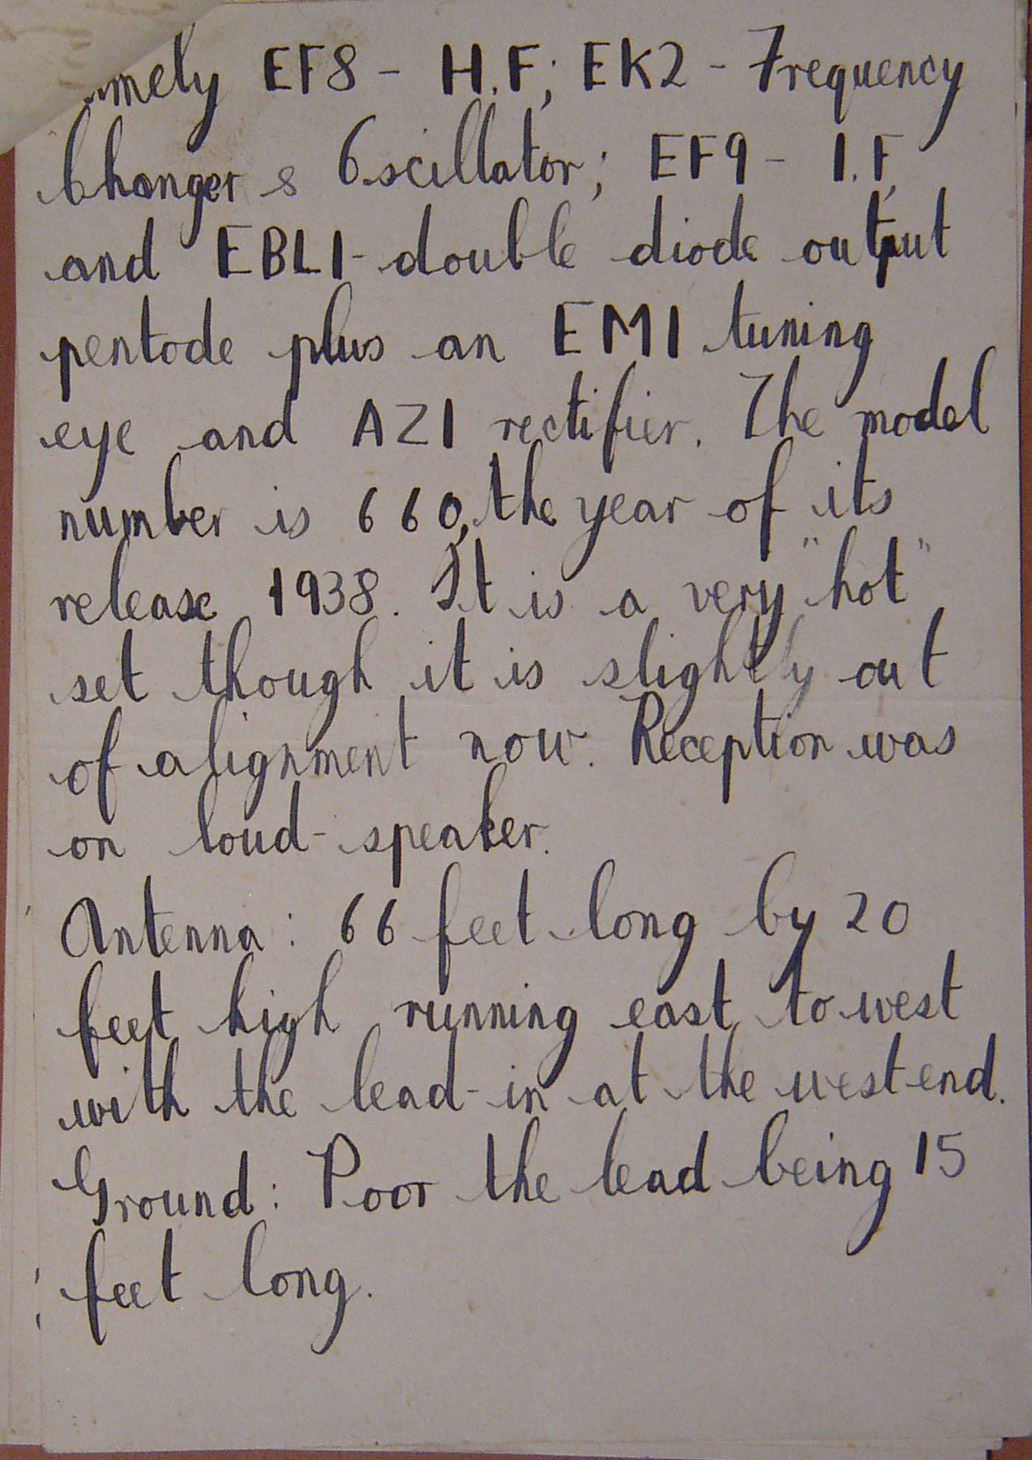 namely EF8 - H.F; EK2 - Frequency
Changer & Oscillator; EF9 - I.F,
and EBL1 - double diode output
pentode plus an EM1 tuning
eye and AZ1 rectifier. The model
number is 660, the year of its
release 1938. It is a very "hot"
set though it is slightly out
of alignment now. Reception was
on loud-speaker.
Antenna: 66 feet long by 20
feet high running east to west
with the lead-in at the west end.
Ground: Poor the lead being 15
feet long.